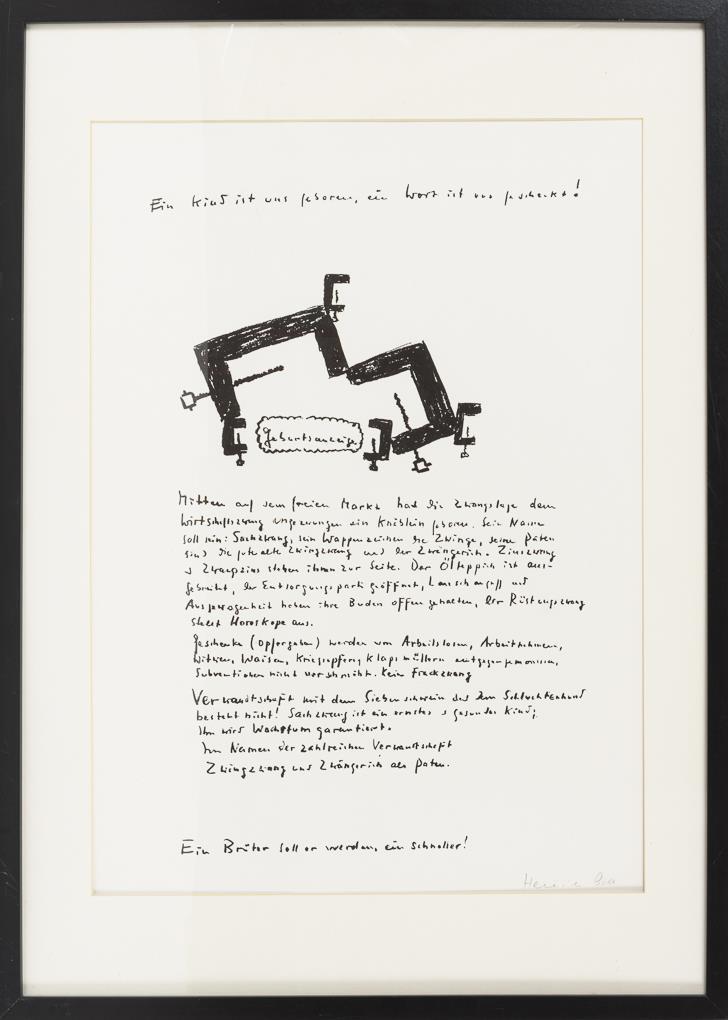 Ein Kind ist uns geboren, ein Wort ist uns geschenkt!
Geburtsanzeige
Mitten auf dem freien Markt hat die Zwangslage dem
Wirtschaftszwang ungezwungen ein Knäblein geboren. Sein Name
soll sein: Sachzwang, sein Wappenzeichen die Zwinge, seine Paten
sind die gute alte Zwingzwang und der Zwängerich. Zinszwang
u Zwangzins stehen ihnen zur Seite. Der Ölteppich ist aus-
gebreitet, der Entsorgungspark geöffnet, Lauschangriff und
Ausgewogenheit haben ihre Buden offen gehalten, der Rüstungszwang
stellt Horoskope aus.
Geschenke (Opfergaben) werden von Arbeitslosen, Arbeitnehmern,
Witwen, Waisen, Kriegsopfern, Klapsmüllern entgegengenommen,
Subventionen nicht verschmäht. Kein Frackzwang
Verwandtschaft mit dem Siebenschwein und dem Schlachtenhund
besteht nicht! Sachzwang ist ein ernstes u gesundes Kind;
Ihm wird Wachstum garantiert.
Im Namen der zahlreichen Verwandtschaft
Zwingzwang und Zwängerich als Paten.
Ein Brüter soll er werden, ein schneller!